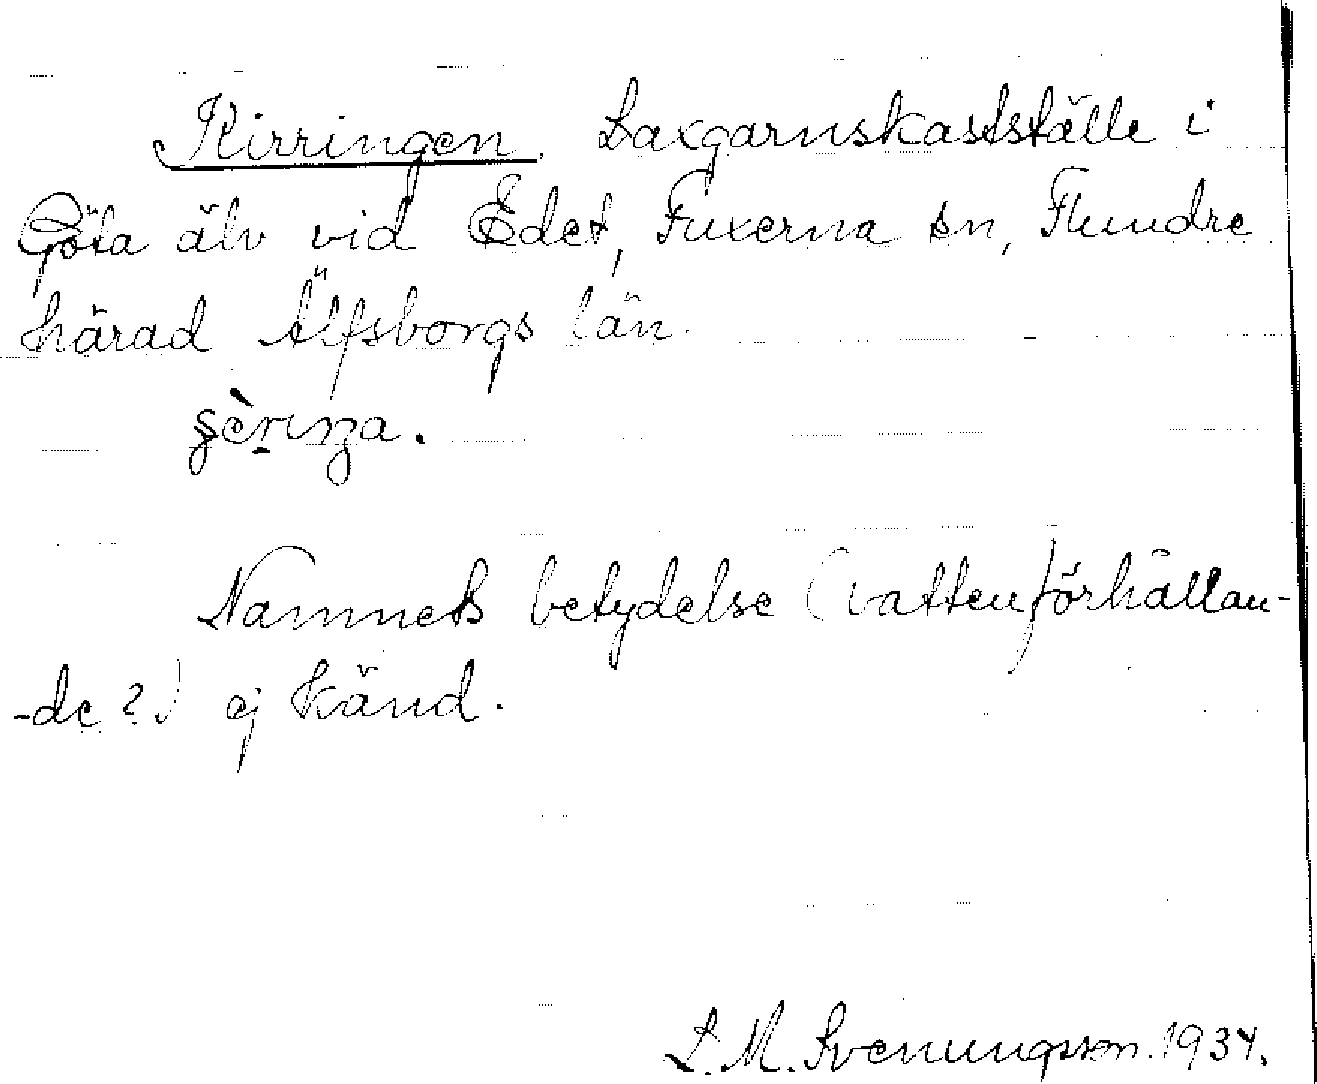 Kirringen. Laxgarnskastställe i
Göta älv vid Edet, Fuxerna sn, Flundre
härad Älfsborgs län.
Namnets betydelse (vattenförhållan-
-de?) ej känd.
L. M. Svenungsson. 1934.